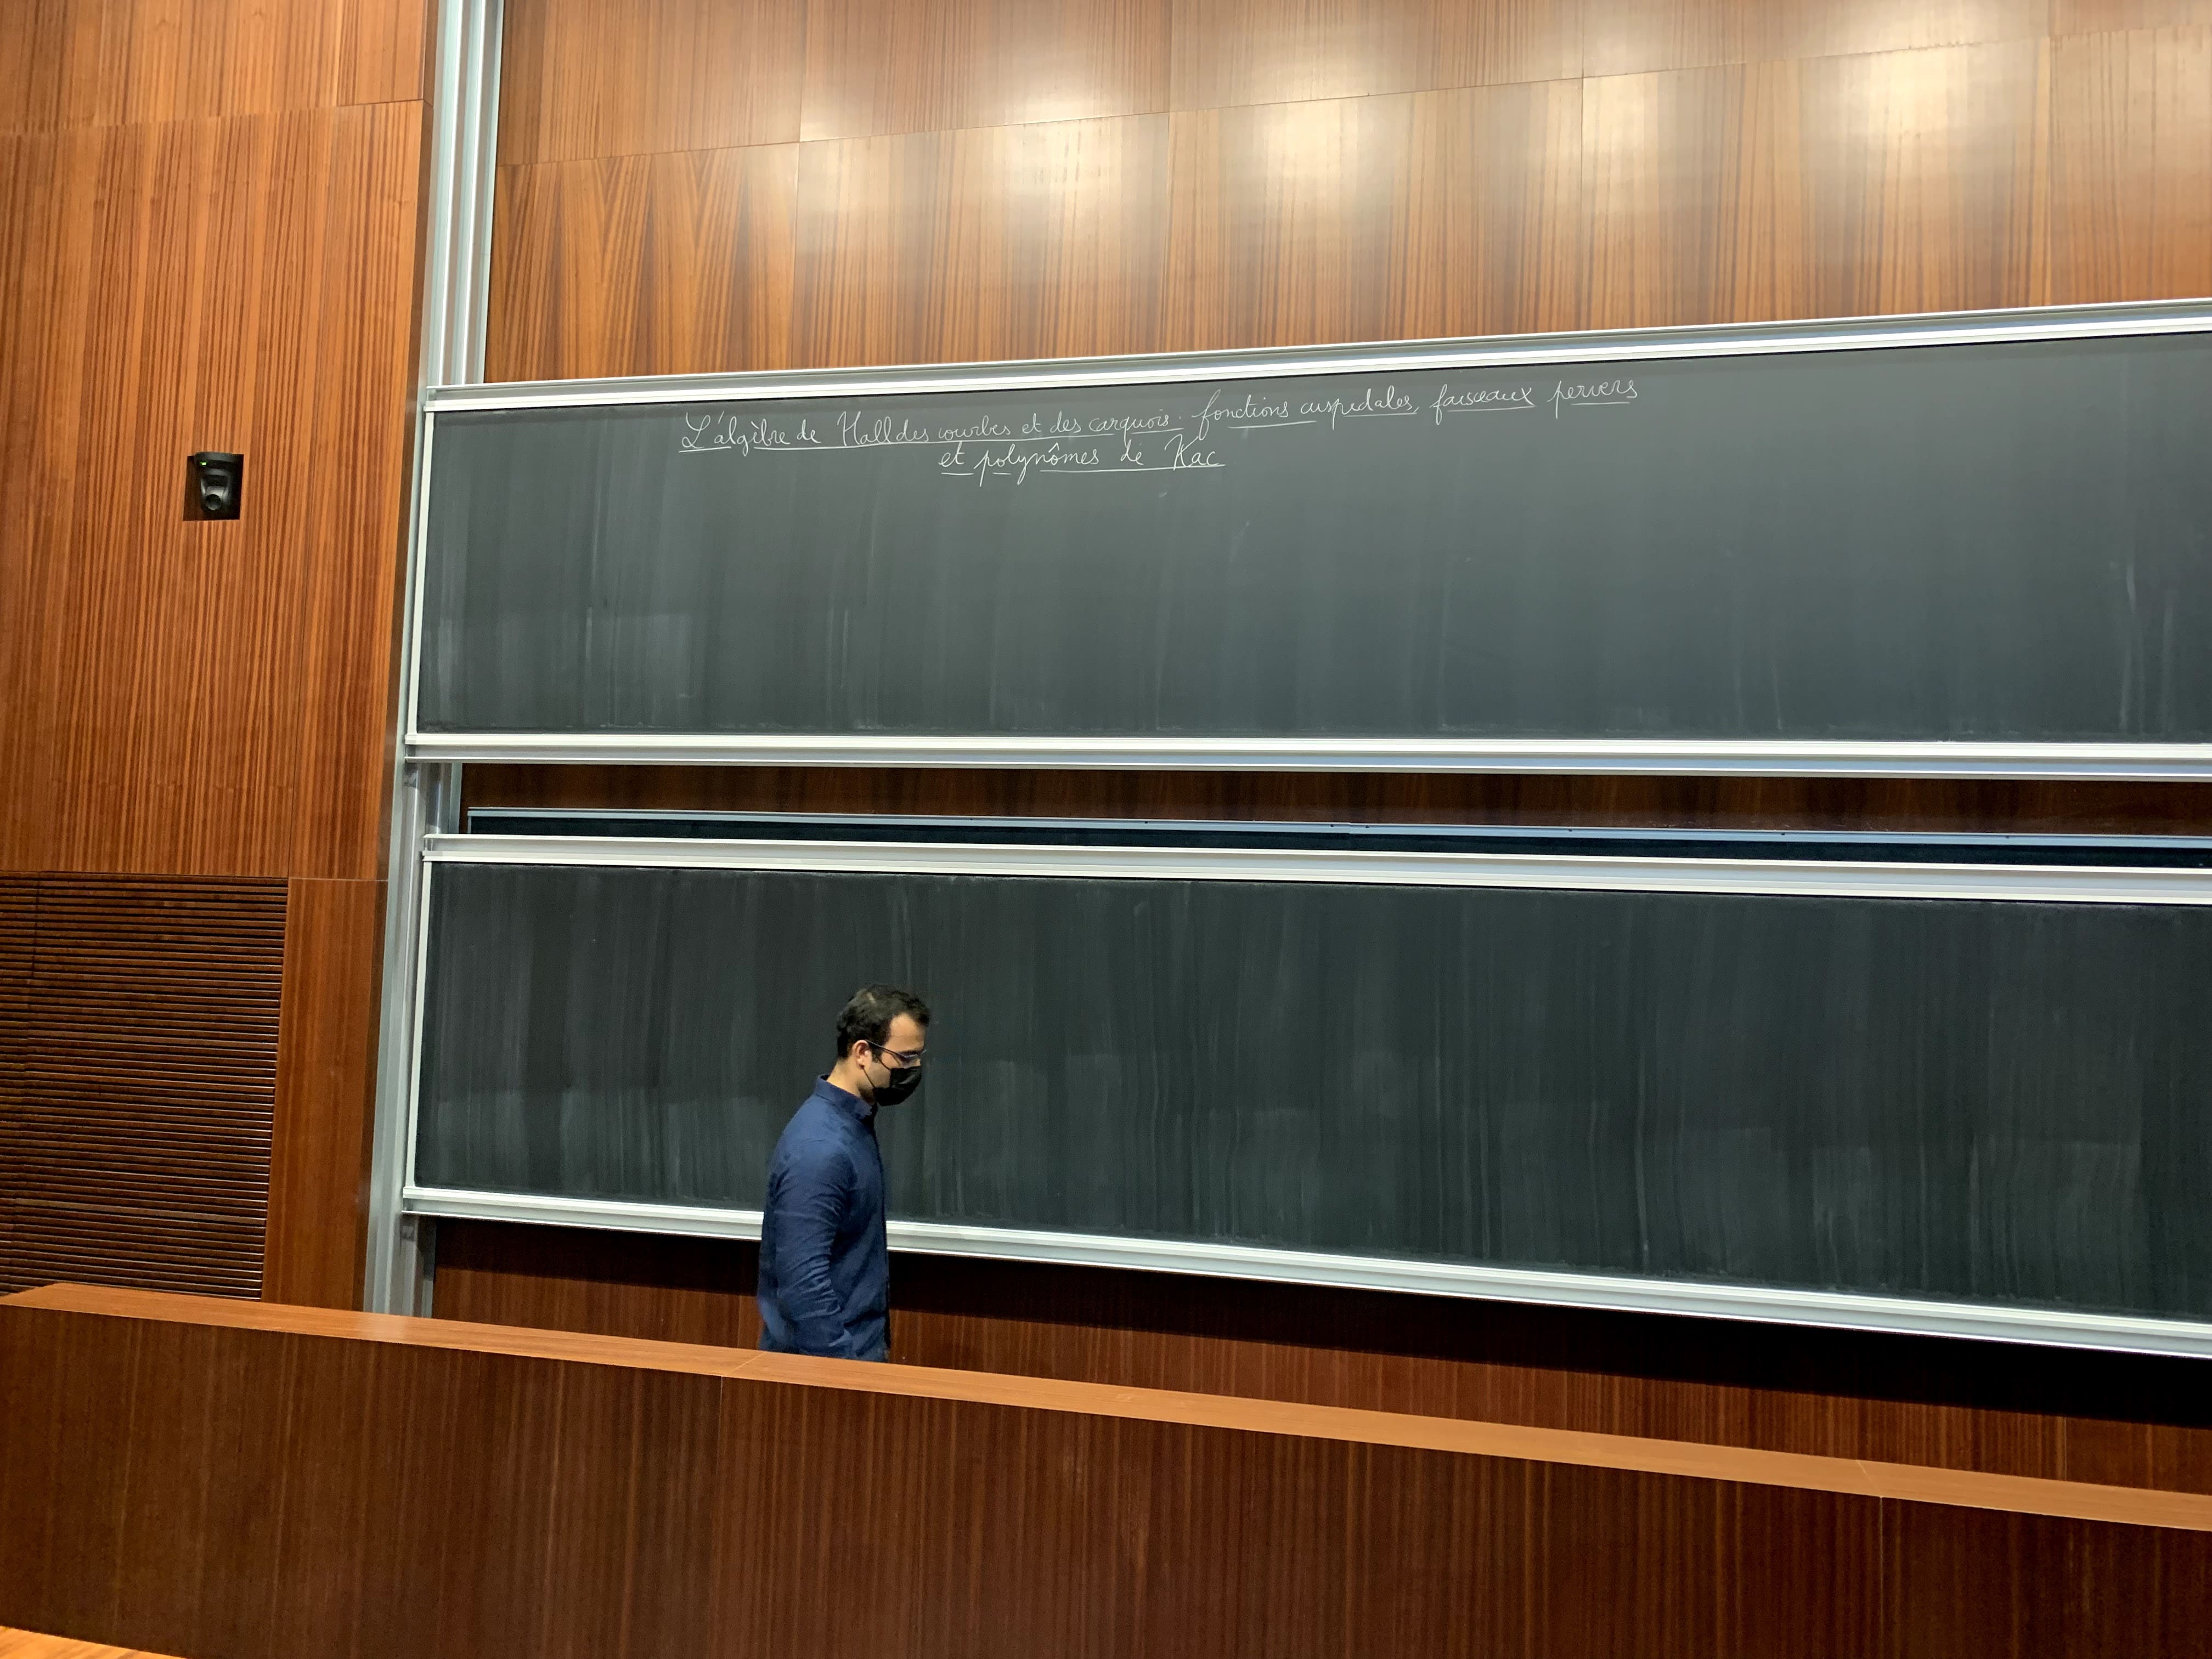 L'algèbre de Hall des courbes et des carquois: fonctions cuspidales, faisceaux pervers
et polynômes de Kac